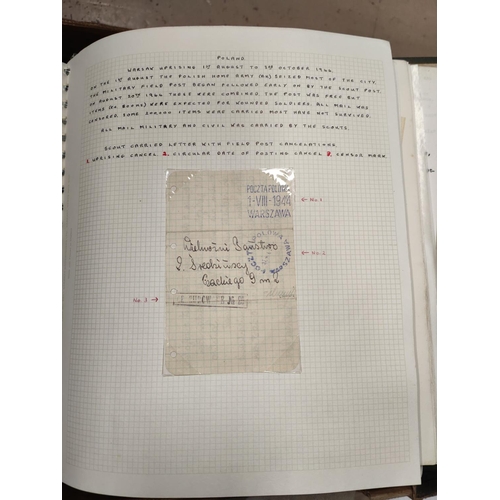 POLAND
WARSAW UPRISING 1ST AUGUST TO 3RD OCTOBER 1944
ON THE 1ST AUGUST THE POLISH HOME ARMY (AK) SEIZED MOST OF THE CITY.
THE MILITARY FIELD POST BEGAN FOLLOWED EARLY ON BY THE SCOUT POST.
ON AUGUST 20TH 1944 THESE WERE COMBINED. THE POST WAS FREE BUT
ITEMS (EG BOOKS) WERE EXPECTED FOR WOUNDED SOLDIERS. ALL MAIL WAS
CENSORED SOME 200000 ITEMS WERE CARRIED MOST HAVE NOT SURVIVED.
ALL MAIL MILITARY AND CIVIL WAS CARRIED BY THE SCOUTS.
SCOUT CARRIED LETTER WITH FIELD POST CANCELATIONS.
1. UPRISING CANCEL 2. CIRCULAR DATE OF POSTING CANCEL 3. CENSOR MARK.
POCZTA POLOWA
1·VIII·1944
WARSZAWA
← No 1
Wielmożni Państwo
← No 2
Czackiego 9 m 2
No 3 →